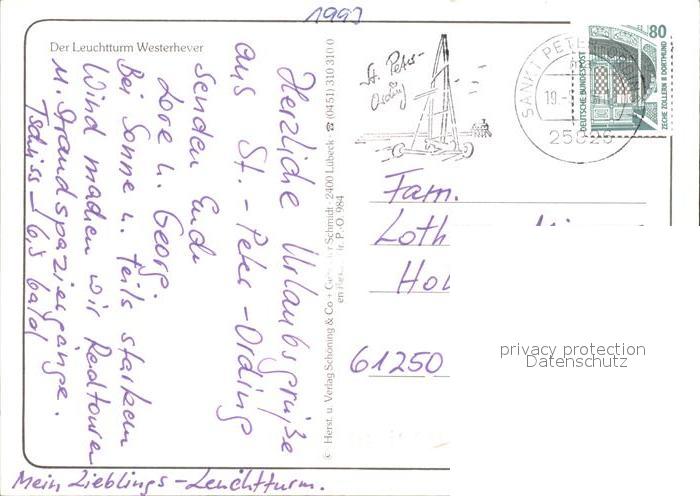 1993
Der Leuchtturm Westerhever
Herzliche Urlaubsgrüße
aus St.-Peter-Ording
senden Euch
Lore u. Georg.
Bei Sonne u. teils starkem
Wind machen wir Radtouren
u. Strandspaziergänge.
Tschüss – bis bald
Mein Lieblings-Leuchtturm.
© Herst. u. Verlag Schöning & Co + Schmidt · 2400 Lübeck · ☎ (0451) 310 310 0
P.O. 984
St. Peter-
Ording
SANKT PETER
19.
25826
80
DEUTSCHE BUNDESPOST
ZECHE ZOLLERN II DORTMUND
Fam.
Loth
61250
privacy protection
Datenschutz